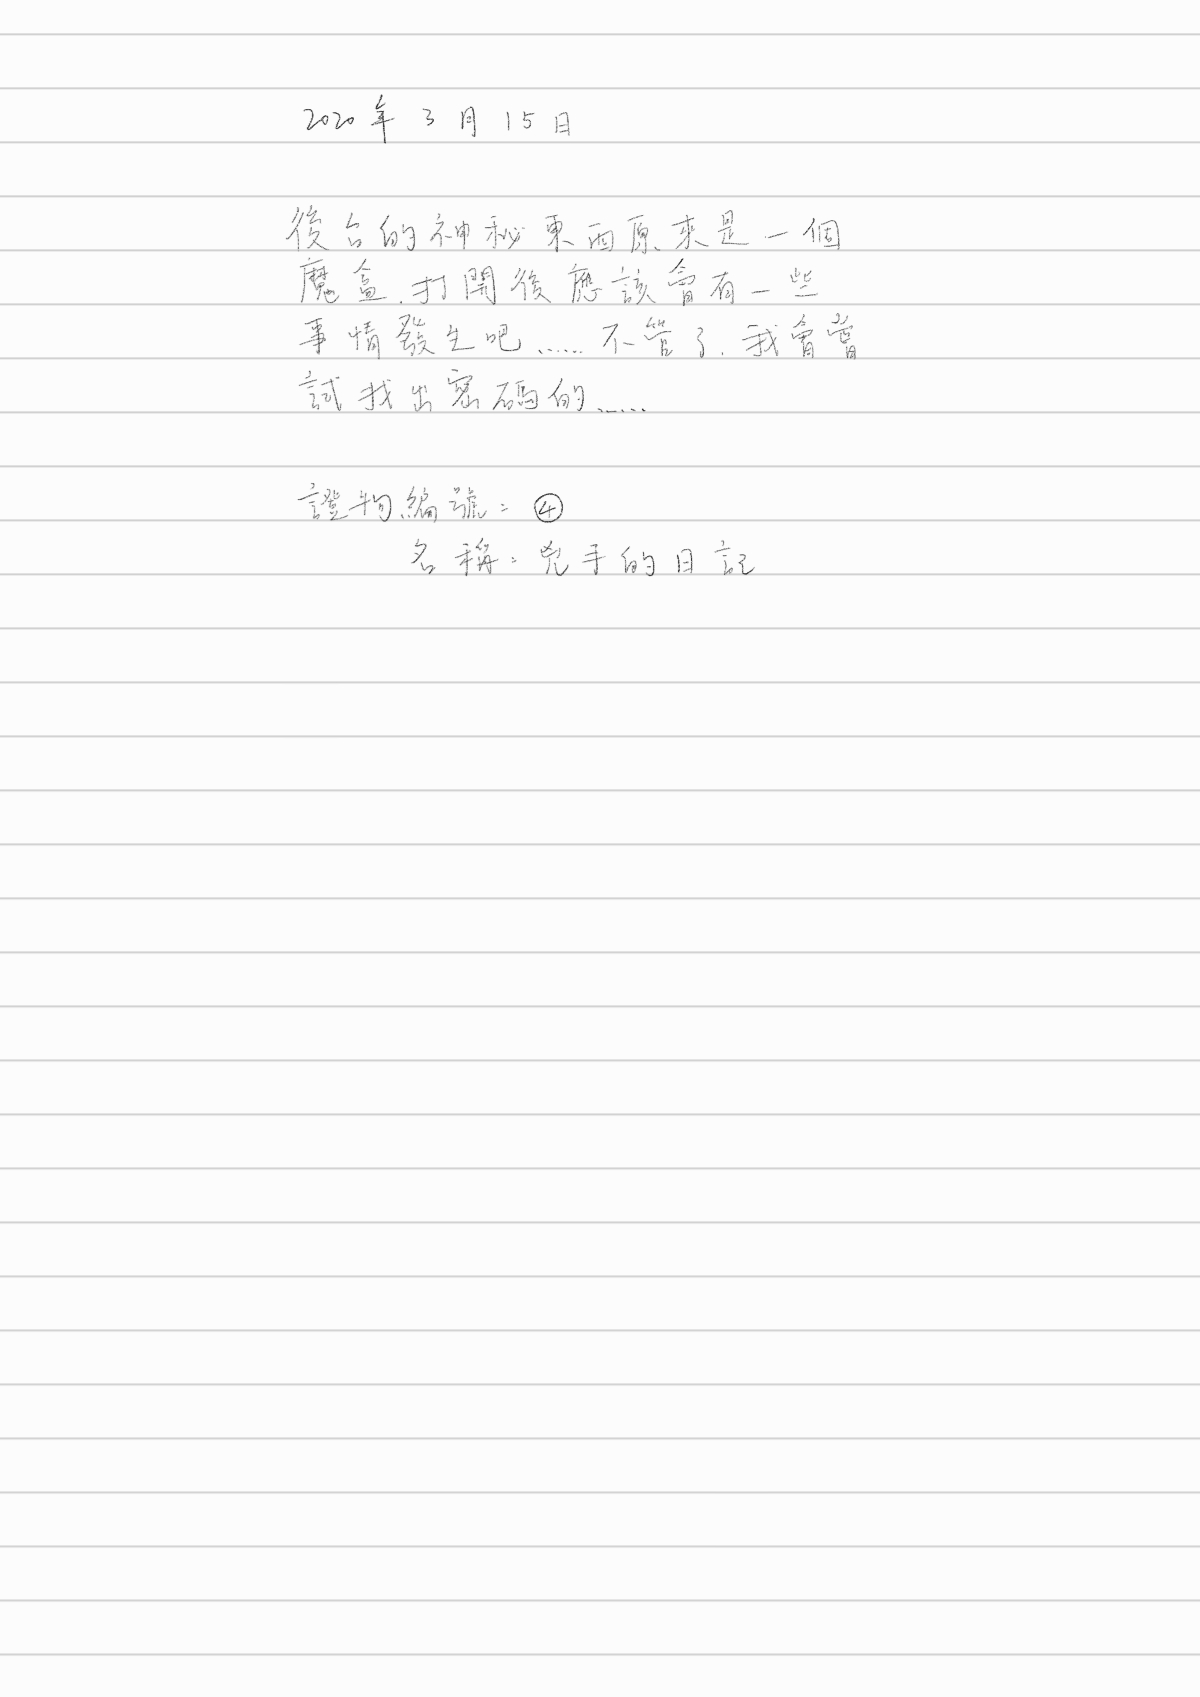 2020年3月15日
後台的神秘東西原來是一個
魔盒,打開後應該會有一些
事情發生吧……不管了,我會嘗
試找出密碼的……
證物編號：④
名稱：兇手的日記